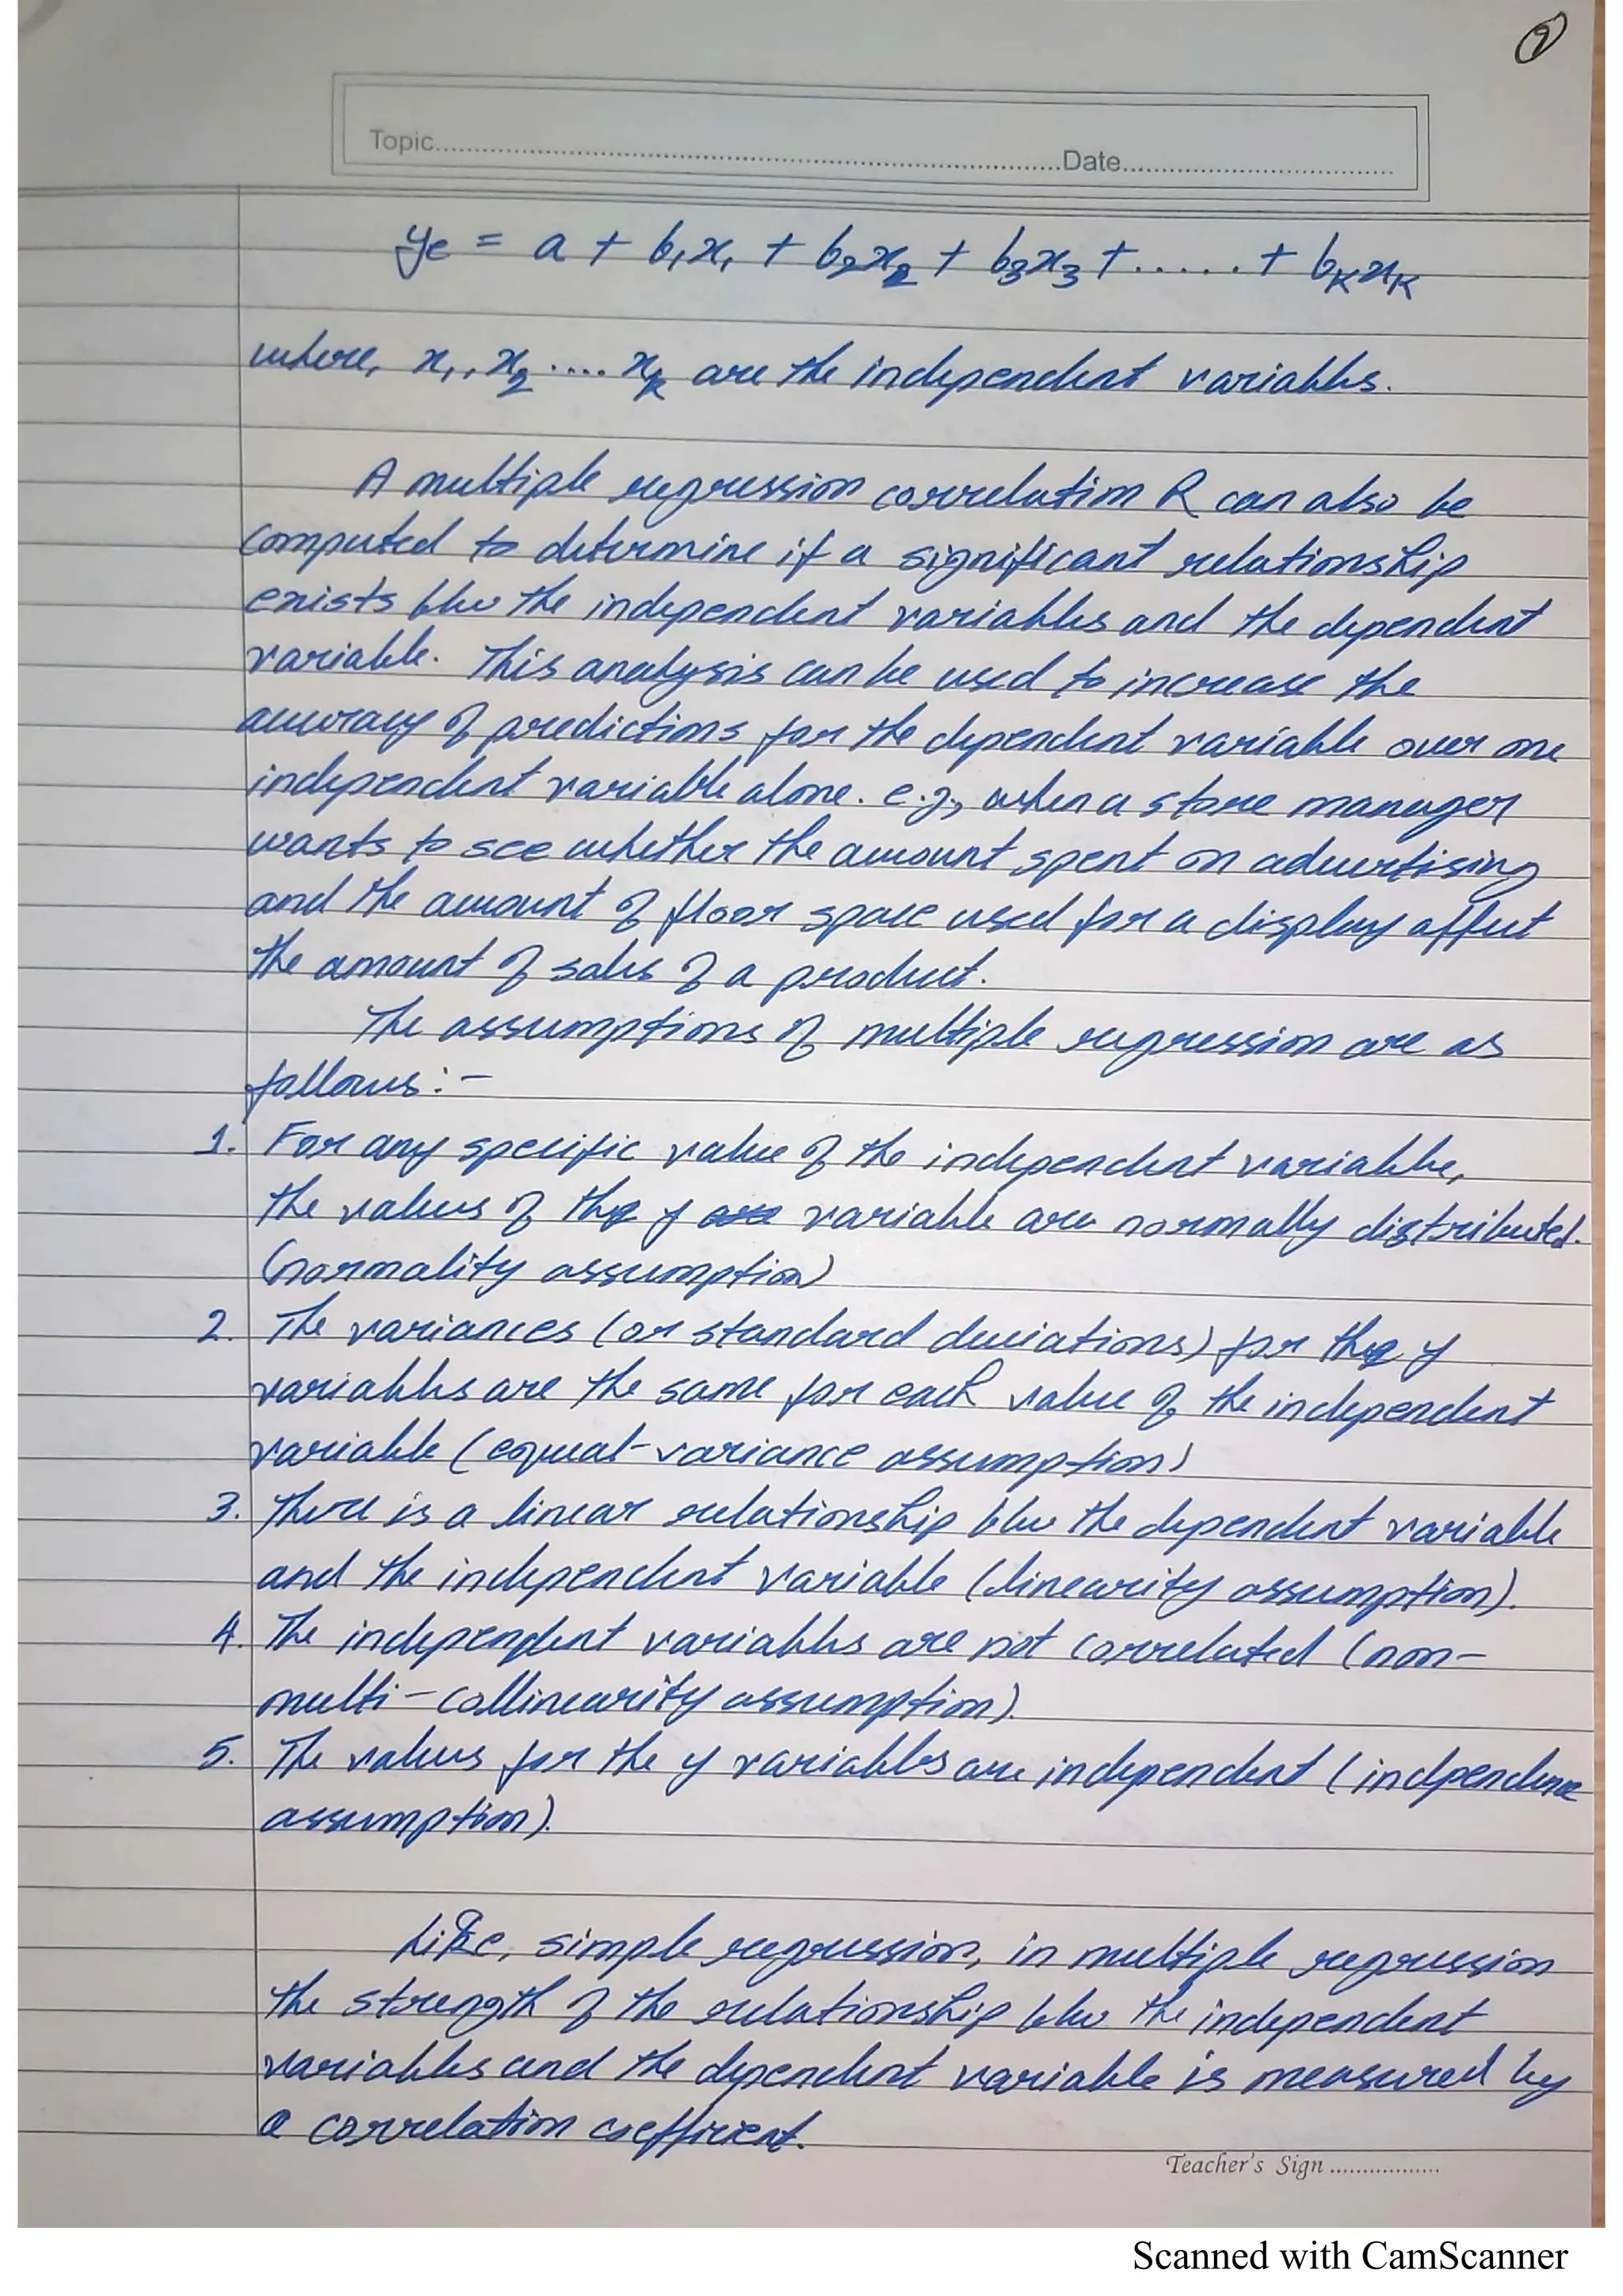 2
Topic..........Date..........
yc = a + b₁x₁ + b₂x₂ + b₃x₃ + ...... + bₖxₖ
where, x₁, x₂ .... xₖ are the independent variables.
A multiple regression correlation R can also be
computed to determine if a significant relationship
exists b/w the independent variables and the dependent
variable. This analysis can be used to increase the
accuracy of predictions for the dependent variable over one
independent variable alone. e.g., when a store manager
wants to see whether the amount spent on advertising
and the amount of floor space used for a display affect
the amount of sales of a product.
The assumptions of multiple regression are as
follows:-
1. For any specific value of the independent variable,
the values of the y variable are normally distributed.
(normality assumption)
2. The variances (or standard deviations) for the y
variables are the same for each value of the independent
variable (equal-variance assumption)
3. There is a linear relationship b/w the dependent variable
and the independent variable (linearity assumption).
4. The independent variables are not correlated (non-
multi-collinearity assumption).
5. The values for the y variables are independent (indpendence
assumption).
Like, simple regression, in multiple regression
the strength of the relationship b/w the independent
variables and the dependent variable is measured by
a correlation coefficient.
Teacher's Sign..........
Scanned with CamScanner